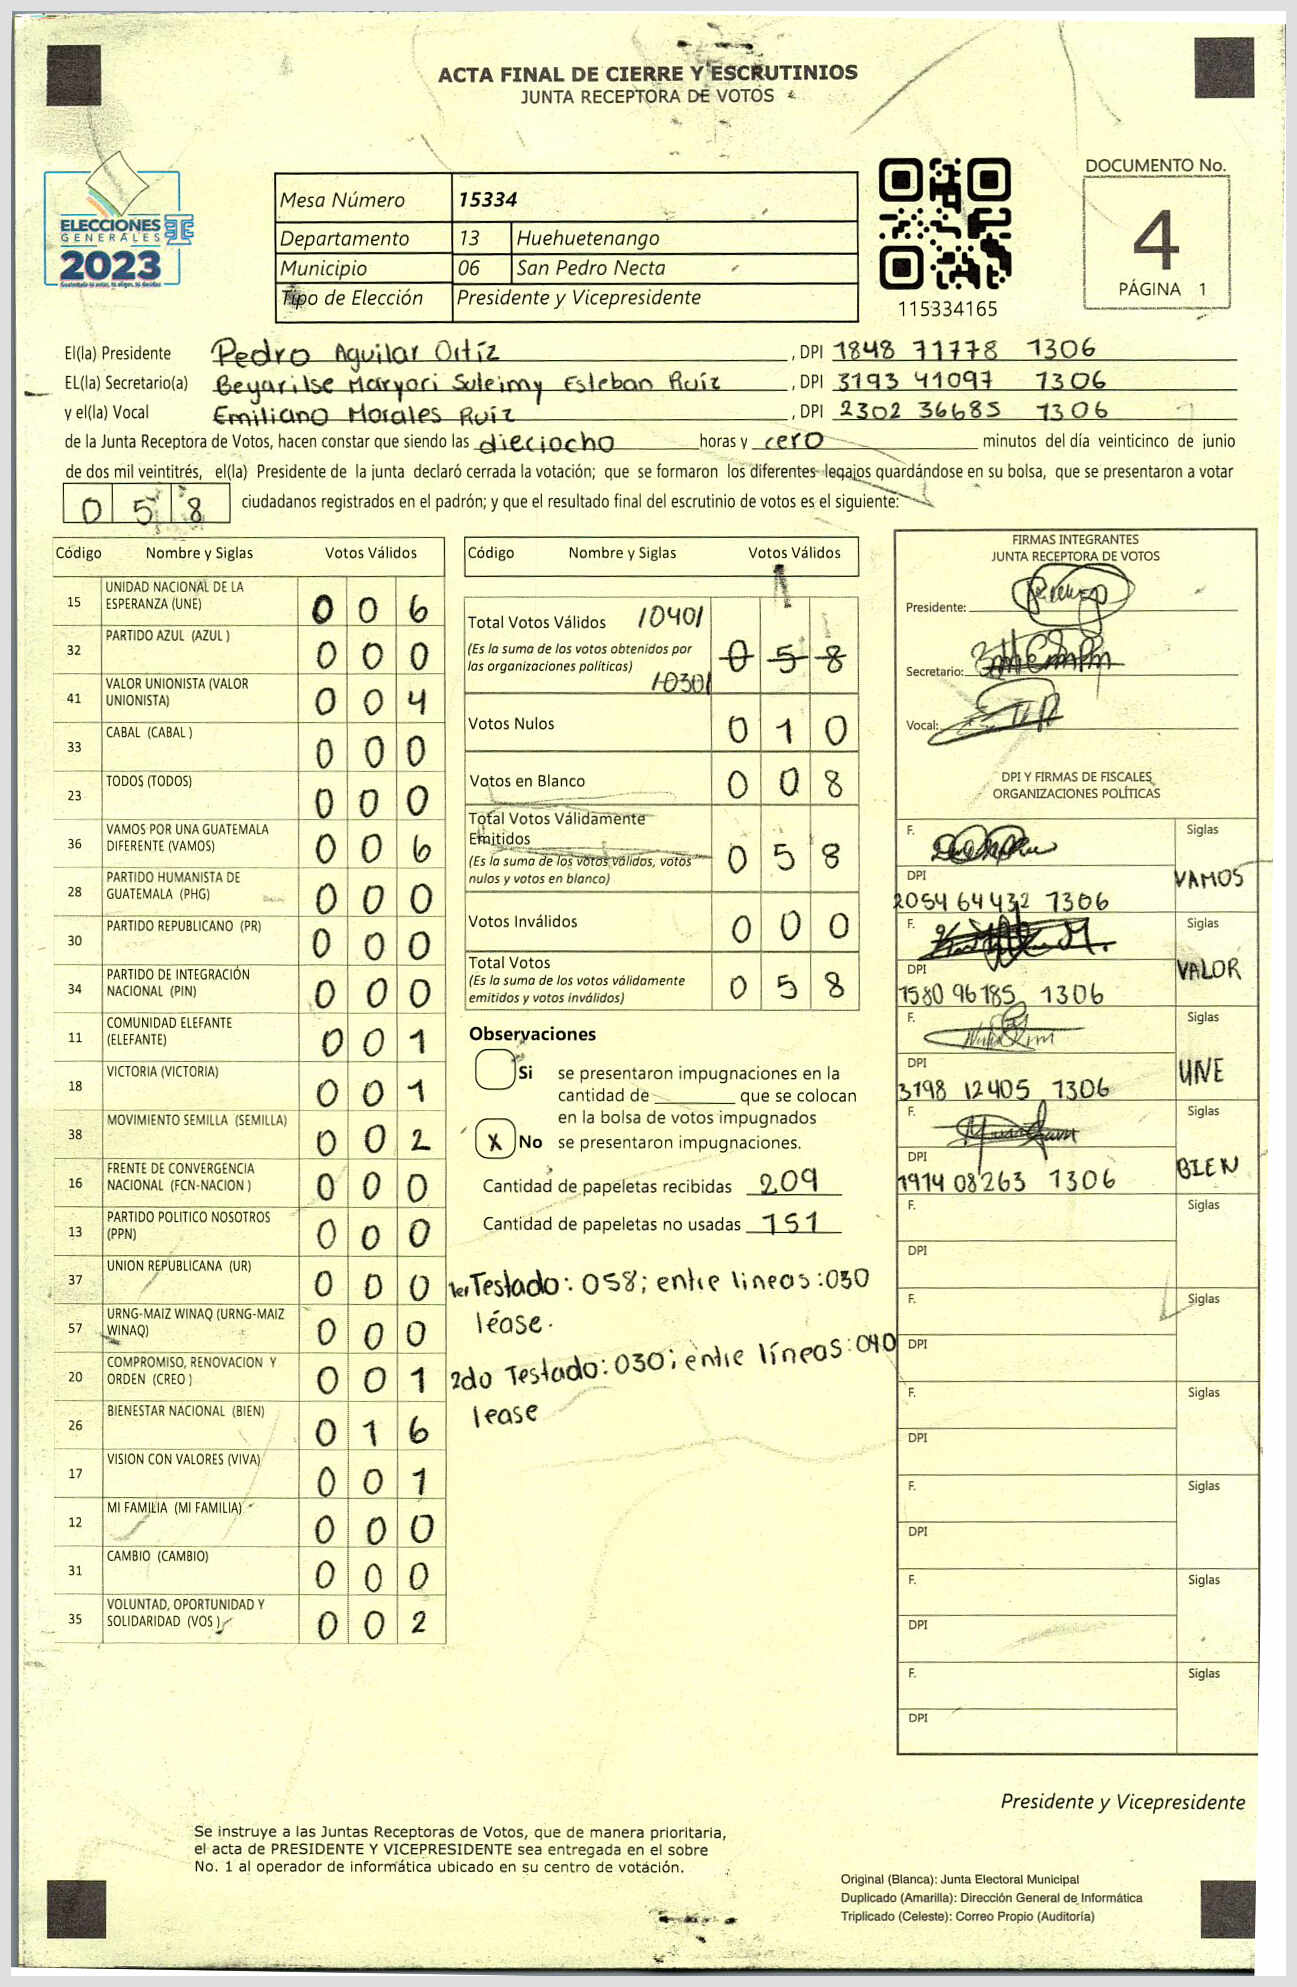 ACTA FINAL DE CIERRE Y ESCRUTINIOS
JUNTA RECEPTORA DE VOTOS
ELECCIONES
GENERALES
2023
Mesa Número 15334
Departamento 13 Huehuetenango
Municipio 06 San Pedro Necta
Tipo de Elección Presidente y Vicepresidente
115334165
DOCUMENTO No.
4
PÁGINA 1
El(la) Presidente Pedro Aguilar Ortíz, DPI 1848 71778 1306
EL(la) Secretario(a) Beyarilse Maryori Suleimy Esteban Ruíz, DPI 3193 41097 1306
y el(la) Vocal Emiliano Morales Ruíz, DPI 2302 36685 1306
de la Junta Receptora de Votos, hacen constar que siendo las dieciocho horas y cero minutos del día veinticinco de junio
de dos mil veintitrés, el(la) Presidente de la junta declaró cerrada la votación; que se formaron los diferentes legajos guardándose en su bolsa, que se presentaron a votar
058 ciudadanos registrados en el padrón; y que el resultado final del escrutinio de votos es el siguiente:
Código Nombre y Siglas Votos Válidos
15 UNIDAD NACIONAL DE LA ESPERANZA (UNE) 006
32 PARTIDO AZUL (AZUL ) 000
41 VALOR UNIONISTA (VALOR UNIONISTA) 004
33 CABAL (CABAL ) 000
23 TODOS (TODOS) 000
36 VAMOS POR UNA GUATEMALA DIFERENTE (VAMOS) 006
28 PARTIDO HUMANISTA DE GUATEMALA (PHG) 000
30 PARTIDO REPUBLICANO (PR) 000
34 PARTIDO DE INTEGRACIÓN NACIONAL (PIN) 000
11 COMUNIDAD ELEFANTE (ELEFANTE) 001
18 VICTORIA (VICTORIA) 001
38 MOVIMIENTO SEMILLA (SEMILLA) 002
16 FRENTE DE CONVERGENCIA NACIONAL (FCN-NACION ) 000
13 PARTIDO POLITICO NOSOTROS (PPN) 000
37 UNION REPUBLICANA (UR) 000
57 URNG-MAIZ WINAQ (URNG-MAIZ WINAQ) 000
20 COMPROMISO, RENOVACION Y ORDEN (CREO ) 001
26 BIENESTAR NACIONAL (BIEN) 016
17 VISION CON VALORES (VIVA) 001
12 MI FAMILIA (MI FAMILIA) 000
31 CAMBIO (CAMBIO) 000
35 VOLUNTAD, OPORTUNIDAD Y SOLIDARIDAD (VOS ) 002
Código Nombre y Siglas Votos Válidos
Total Votos Válidos /040/
(Es la suma de los votos obtenidos por
las organizaciones políticas) 058
/030/
Votos Nulos 010
Votos en Blanco 008
Total Votos Válidamente
Emitidos
(Es la suma de los votos válidos, votos
nulos y votos en blanco) 058
Votos Inválidos 000
Total Votos
(Es la suma de los votos válidamente
emitidos y votos inválidos) 058
Observaciones
Si se presentaron impugnaciones en la
cantidad de ________ que se colocan
en la bolsa de votos impugnados
X No se presentaron impugnaciones.
Cantidad de papeletas recibidas 209
Cantidad de papeletas no usadas 151
1er Testado: 058; entre lineas: 030
léase.
2do Testado: 030; entre líneas: 040
lease
FIRMAS INTEGRANTES
JUNTA RECEPTORA DE VOTOS
Presidente:
Secretario:
Vocal:
DPI Y FIRMAS DE FISCALES
ORGANIZACIONES POLÍTICAS
F. Siglas
DPI VAMOS
2054 64432 1306
F. Siglas
DPI VALOR
1580 96185 1306
F. Siglas
DPI UNE
3198 12405 1306
F. Siglas
DPI BIEN
1914 08263 1306
F. Siglas
DPI
F. Siglas
DPI
F. Siglas
DPI
F. Siglas
DPI
F. Siglas
DPI
F. Siglas
DPI
Presidente y Vicepresidente
Se instruye a las Juntas Receptoras de Votos, que de manera prioritaria,
el acta de PRESIDENTE Y VICEPRESIDENTE sea entregada en el sobre
No. 1 al operador de informática ubicado en su centro de votación.
Original (Blanca): Junta Electoral Municipal
Duplicado (Amarilla): Dirección General de Informática
Triplicado (Celeste): Correo Propio (Auditoría)